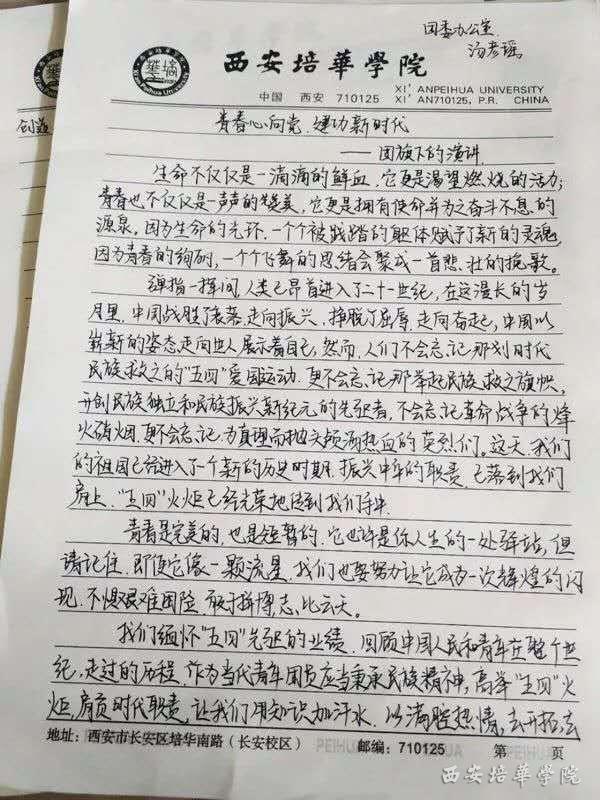 团委办公室
汤彦瑶
西安培華學院
中国 西安 710125
XI' ANPEIHUA UNIVERSITY
XI' AN710125, P.R. CHINA
创造
青春心向党、建功新时代
——团旗下的演讲
生命不仅仅是一滴滴的鲜血，它更是渴望燃烧的活力；
青春也不仅仅是一声声的赞美，它更是拥有使命并为之奋斗不息的
源泉。因为生命的光环，一个个被践踏的躯体赋予了新的灵魂，
因为青春的绚丽，一个个飞舞的思绪会聚成一首悲壮的挽歌。
弹指一挥间，人类已昂首进入了二十一世纪，在这漫长的岁
月里，中国战胜了衰落，走向振兴，挣脱了屈辱，走向奋起，中国以
崭新的姿态走向世人展示着自己，然而，人们不会忘记那划时代
民族救亡的“五四”爱国运动，更不会忘记那举起民族救亡旗帜，
开创民族独立和民族振兴新纪元的先驱者，不会忘记革命战争的烽
火硝烟，更不会忘记为真理而抛头颅洒热血的英烈们。这天，我们
的祖国已经进入了一个新的历史时期，振兴中华的职责，已落到我们
肩上，“五四”火炬已经光荣地传到我们手中
青春是完美的，也是短暂的，它也许是你人生的一处驿站，但
请记住，即使它像一颗流星，我们也要努力让它成为一次辉煌的闪
现，不惧艰难困险，敢于拼搏志，比云天。
我们缅怀“五四”先驱的业绩，回顾中国人民和青年在整个世
纪，走过的历程，作为当代青年团员应当秉承民族精神，高举“五四”火
炬，肩负时代职责，让我们用知识加汗水，以满腔热情，去开拓，去
地址：西安市长安区培华南路（长安校区） 邮编：710125 第 页
西安培華學院